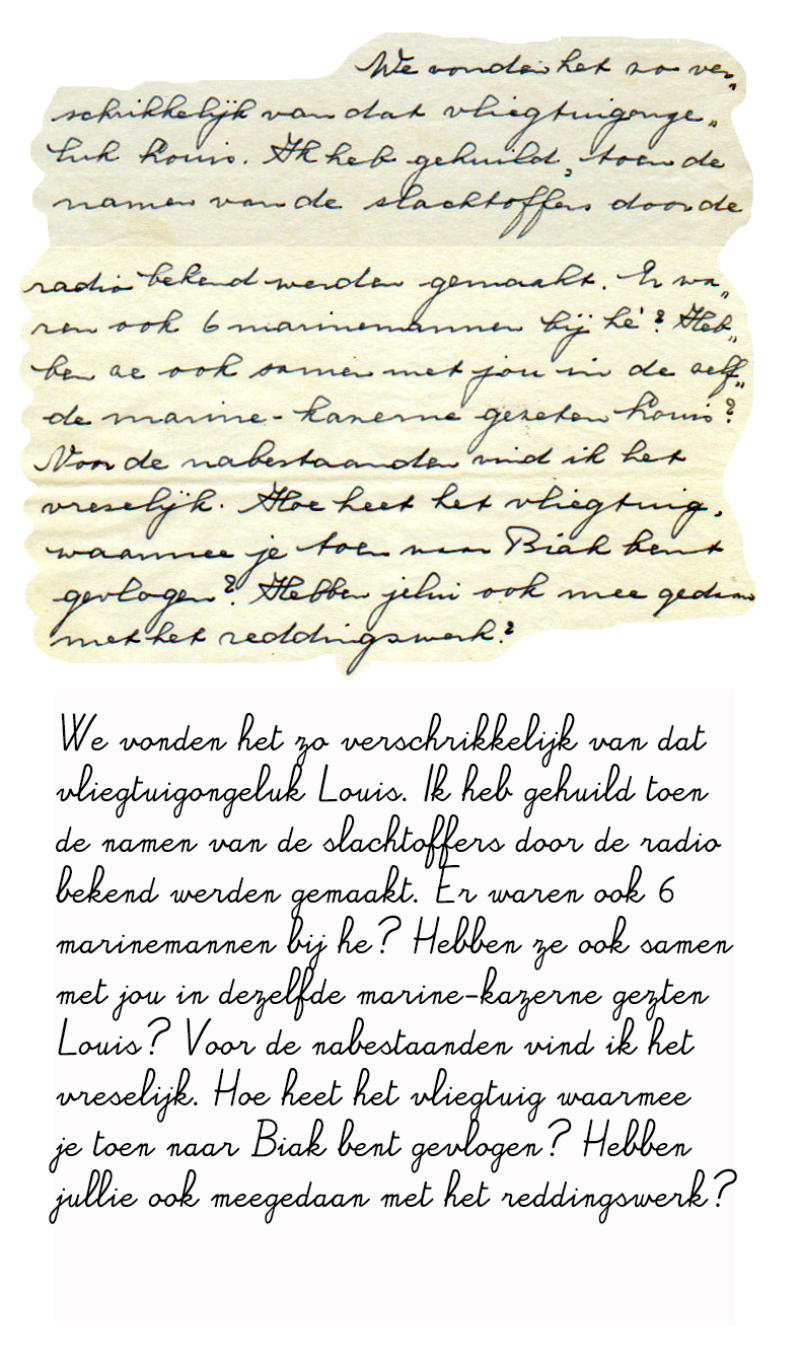 We vonden het zo ver„
schrikkelijk van dat vliegtuigonge„
luk Louis. Ik heb gehuild, toen de
namen van de slachtoffers door de
radio bekend werden gemaakt. Er wa„
ren ook 6 marinemannen bij hé? Heb„
ben ze ook samen met jou in de zelf„
de marine-kazerne gezeten Louis?
Voor de nabestaanden vind ik het
vreselijk. Hoe heet het vliegtuig,
waarmee je toen naar Biak bent
gevlogen? Hebben jelui ook mee gedaan
met het reddingswerk?
We vonden het zo verschrikkelijk van dat
vliegtuigongeluk Louis. Ik heb gehuild toen
de namen van de slachtoffers door de radio
bekend werden gemaakt. Er waren ook 6
marinemannen bij he? Hebben ze ook samen
met jou in dezelfde marine-kazerne gezten
Louis? Voor de nabestaanden vind ik het
vreselijk. Hoe heet het vliegtuig waarmee
je toen naar Biak bent gevlogen? Hebben
jullie ook meegedaan met het reddingswerk?